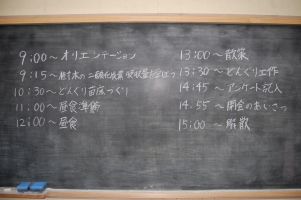 9:00〜オリエンテーション
9:15〜樹木の二酸化炭素吸収量を学ぼう
10:30〜どんぐり苗床づくり
11:00〜昼食準備
12:00〜昼食
13:00〜散策
13:30〜どんぐり工作
14:45〜アンケート記入
14:55〜閉会のあいさつ
15:00〜解散